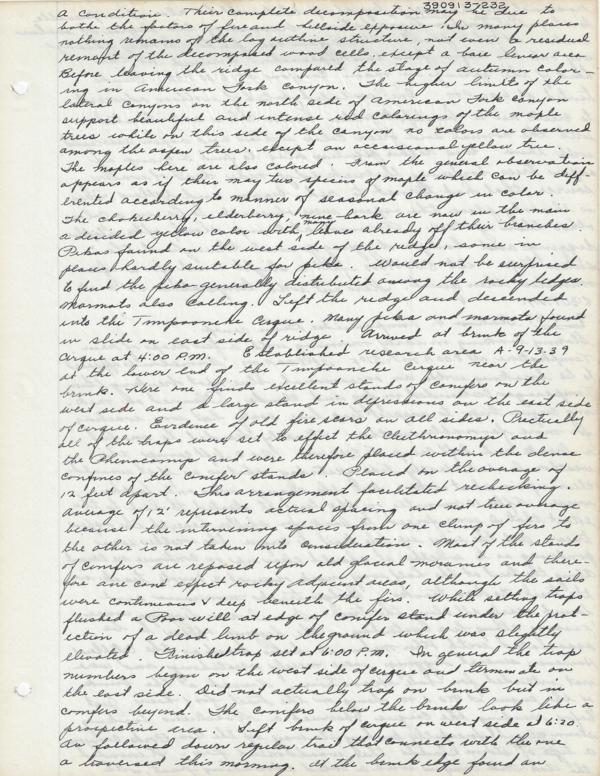 3909137232
a condition. Their complete decomposition may be due to
bothe the factors of fire and hillside exposure. In many places
nothing remains of the log outline structure not even a residual
remant of the decomposed wood cells, except a bare linear area
Before leaving the ridge compared the stage of autumn color-
ing in American Fork canyon. The higher limits of the
lateral canyons on the north side of American Fork canyon
support beautiful and intense red colorings of the maple
trees while on this side of the canyon no colors are observed
among the aspen trees, except an occaisional yellow tree.
The maples here are also colored. From the general observation
appears as if their may two species of maple which can be diff-
erented according to manner of seasonal change in color.
The chokecherry, elderberry, nine-bark are now in the main
a decided yellow color with many leaves already off their branches.
Pikas found on the west side of the ridge, some in
places hardly suitable for pika. Would not be surprised
to find the pika generally distributed among the rocky ledges.
Marmots also calling. Left the ridge and descended
into the Timpooneke Cirque. Many pikas and marmots found
in slide on east side of ridge. Arrived at brink of the
cirque at 4:00 P.M. Established research area A-9-13-39
at the lower end of the Timpooneke Cirque near the
brink. Here one finds excellent stands of conifers on the
west side and a large stand in depressions on the east side
of cirque. Evidence of old fire scars on all sides. Practically
all of the traps were set to effect the Clethrionomys and
the Phenacomys and were therefore placed within the dense
confines of the conifer stands. Placed on the average of
12 feet apart. This arrangement facilitated rechecking.
Average of 12' represents actual spacing and not true average
because the intervening spaces from one clump of firs to
the other is not taken into consideration. Most of the stands
of conifers are reposed upon old glacial moraines and there-
fore one can expect rocky adjacent areas, although the soils
were continuous & deep beneath the firs. While setting traps
flushed a Poor will at edge of conifer stand under the prot-
ection of a dead limb on the ground which was slightly
elevated. Finished trap set at 6:00 P.M. In general the trap
numbers begin on the west side of cirque and terminate on
the east side. Did not actually trap on brink but in
conifers beyond. The conifers below the brink look like a
prospective area. Left brink of cirque on west side at 6:20.
An followed down regular trail that connects with the one
a traversed this morning. At the brink edge found an